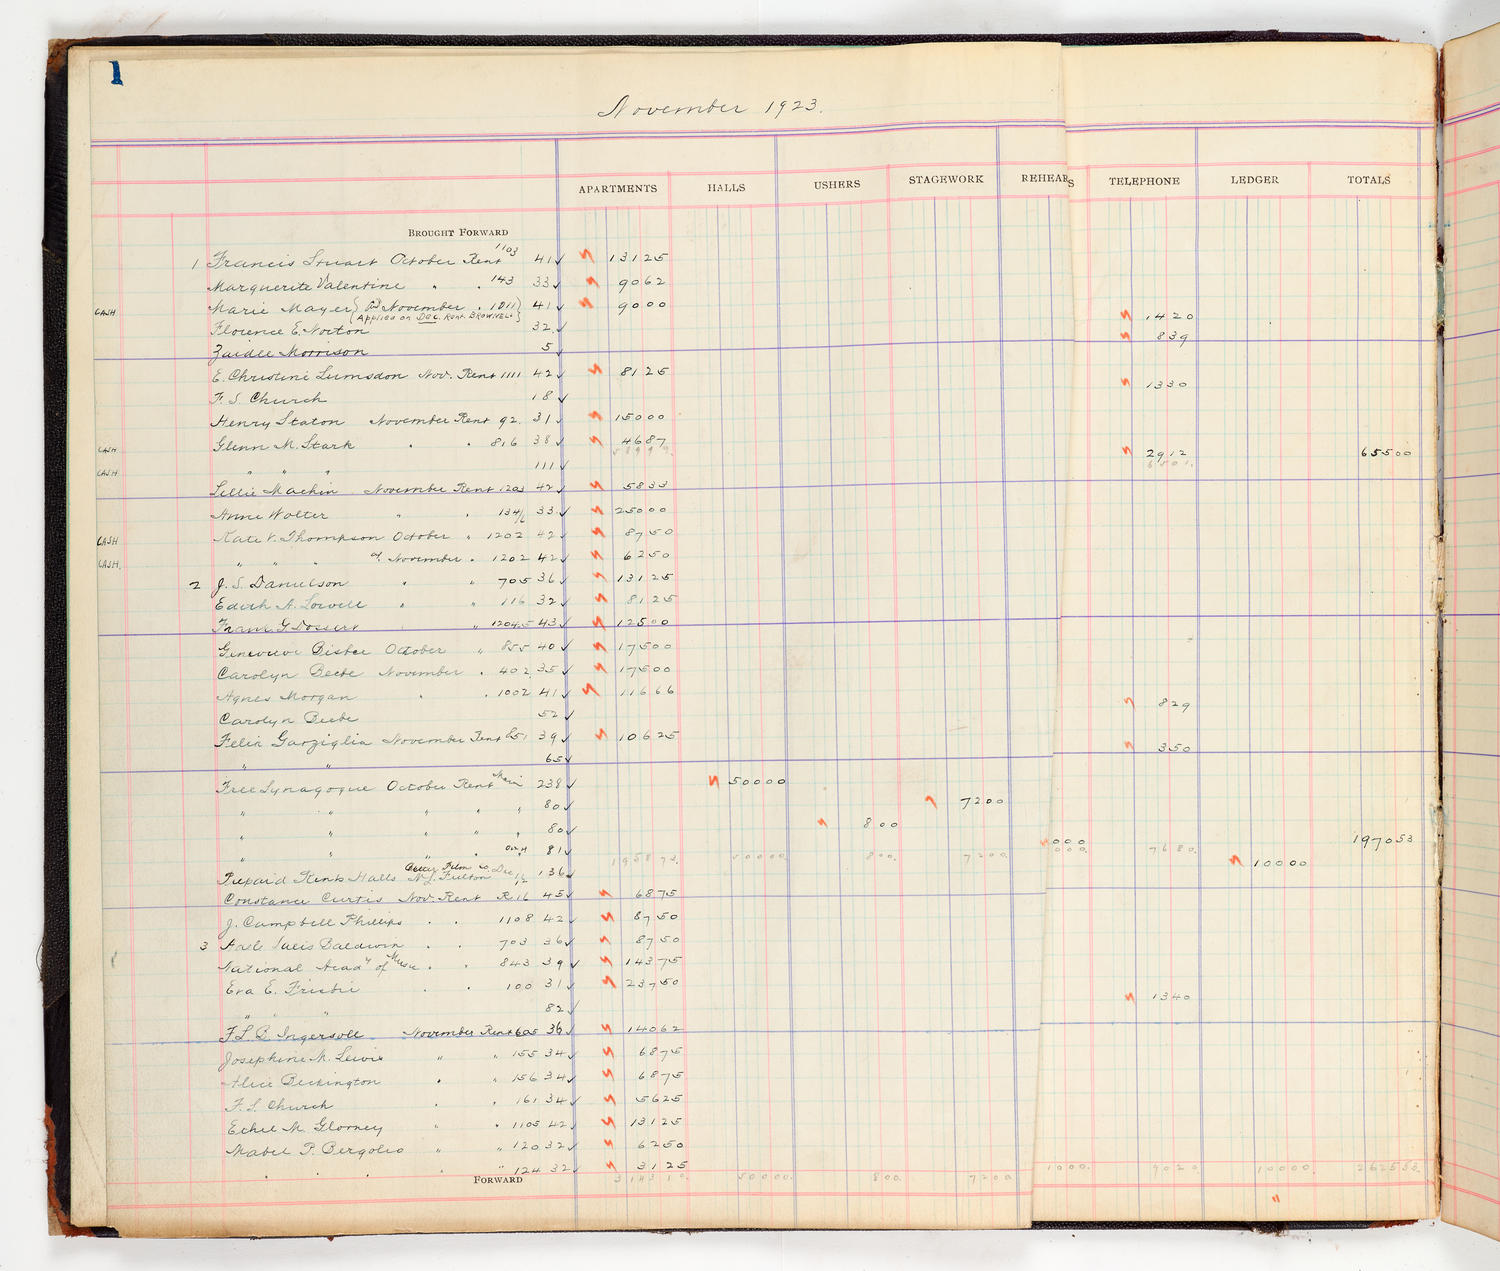 1
November 1923.
APARTMENTS HALLS USHERS STAGEWORK REHEAR S TELEPHONE LEDGER TOTALS
BROUGHT FORWARD
1 Francis Stuart October Rent 1103 41 ✓ 131 25
Marguerite Valentine " " 143 33 ✓ 90 62
CASH Marie Mayer { November " 1011 } 41 ✓ 90 00
{ Applied on Dec. Rent. BROWNELL }
Florence E. Norton 32 ✓ 14 20
Zaidee Morrison 5 ✓ 8 39
E. Christine Lumsdon Nov. Rent 1111 42 ✓ 81 25
F. S. Church 18 ✓ 13 30
Henry Staton November Rent 92. 31 ✓ 150 00
CASH Glenn M. Stark " " 816 38 ✓ 46 87
CASH " " " 111 ✓ 29 12 655 00
Lillie Machin November Rent 1203 42 ✓ 58 33
Anne Wolter " " 134/6 33 ✓ 250 00
CASH Kate V. Thompson October " 1202 42 ✓ 87 50
CASH. " " " a/c November " 1202 42 ✓ 62 50
2 J. S. Danielson " " 705 36 ✓ 131 25
Edith A. Lowell " " 116 32 ✓ 81 25
Frank G Dossert " " 1204.5 43 ✓ 125 00
Genevieve Bisbee October " 855 40 ✓ 175 00
Carolyn Beebe November " 402 35 ✓ 175 00
Agnes Morgan " " 1002 41 ✓ 116 66
Carolyn Beebe 52 ✓ 8 29
Felix Garziglia November Rent 851 39 ✓ 106 25
" " 65 ✓ 3 50
Free Synagogue October Rent Main 238 ✓ 500 00
" " " " " 80 ✓ 72 00
" " " " " 80 ✓ 8 00
" " " " 81 ✓ 1970 53
1958 73. 500 00. 8 00. 72 00. 76 80.
Prepaid Rents Halls Better Film Co Dec 12 N. J. Fulton 136 ✓ 100 00
Constance Curtis Nov. Rent R. 16 45 ✓ 68 75
J. Campbell Phillips " " 1108 42 ✓ 87 50
3 Baldwin " " 703 36 ✓ 87 50
National Acad'y of Music " " 843 39 ✓ 143 75
Eva E. Frisbie " " 100 31 ✓ 237 50
" " " 82 ✓ 13 40
F. L. B. Ingersoll November Rent 605 36 ✓ 140 62
Josephine M. Lewis " " 155 34 ✓ 68 75
Alice Beckington " " 156 34 ✓ 68 75
F. S. Church " " 161 34 ✓ 56 25
Ethel M. Glorney " " 1105 42 ✓ 131 25
Mabel P. Bergolio " " 120 32 ✓ 62 50
" " " " " 124 32 ✓ 31 25
FORWARD 3143 10. 500 00. 8 00. 72 00 10 00. 90 20 100 00. 2625 53.